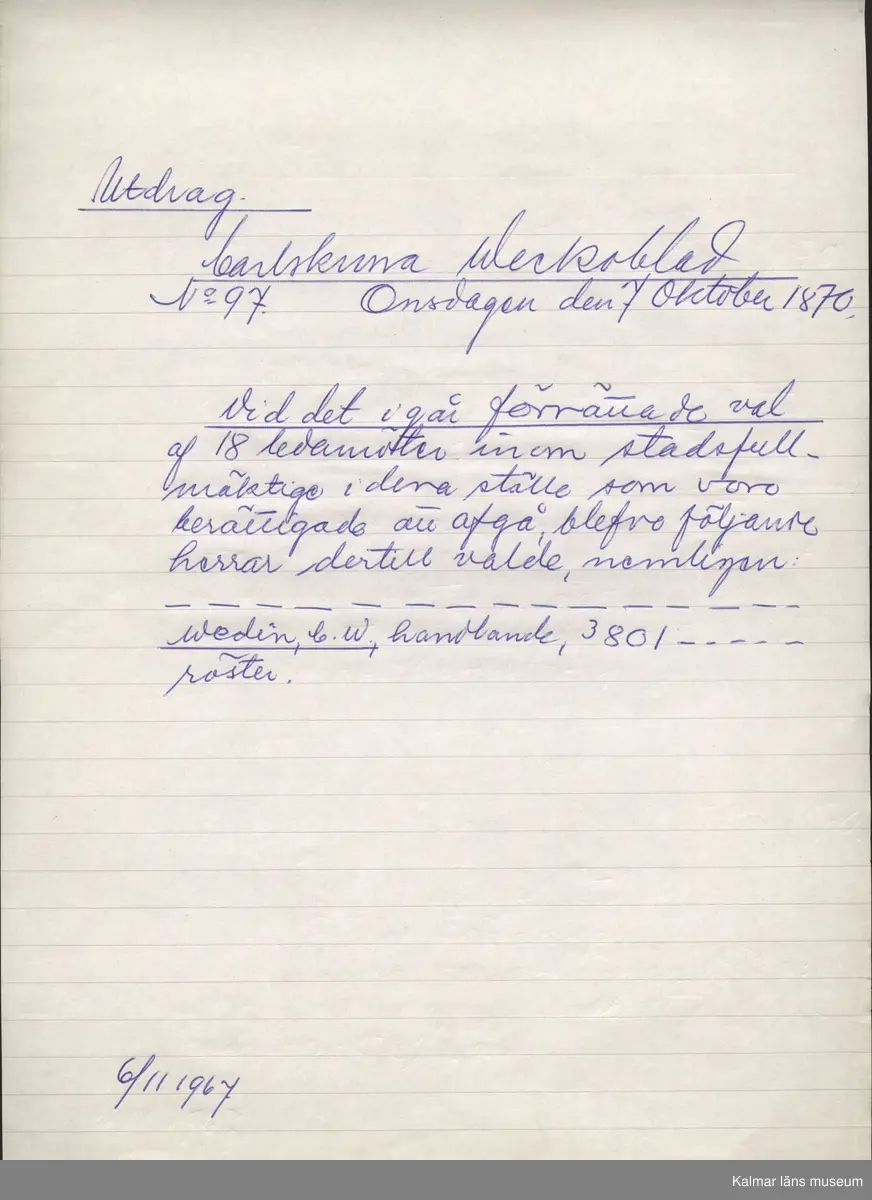 Utdrag.
Carlskrona Weckoblad
No 97. Onsdagen den 7 Oktober 1870.
Vid det i går förrättade val
af 18 ledamöter inom stadsfull-
mäktige i dera ställe som voro
berättigade att afgå, blefvo följande
herrar dertill valde, nemligen:
— — — — — — — — — — — — — —
Wedin, C. W., handlande, 3801 — — — — —
röster.
6/11 1967
Kalmar läns museum